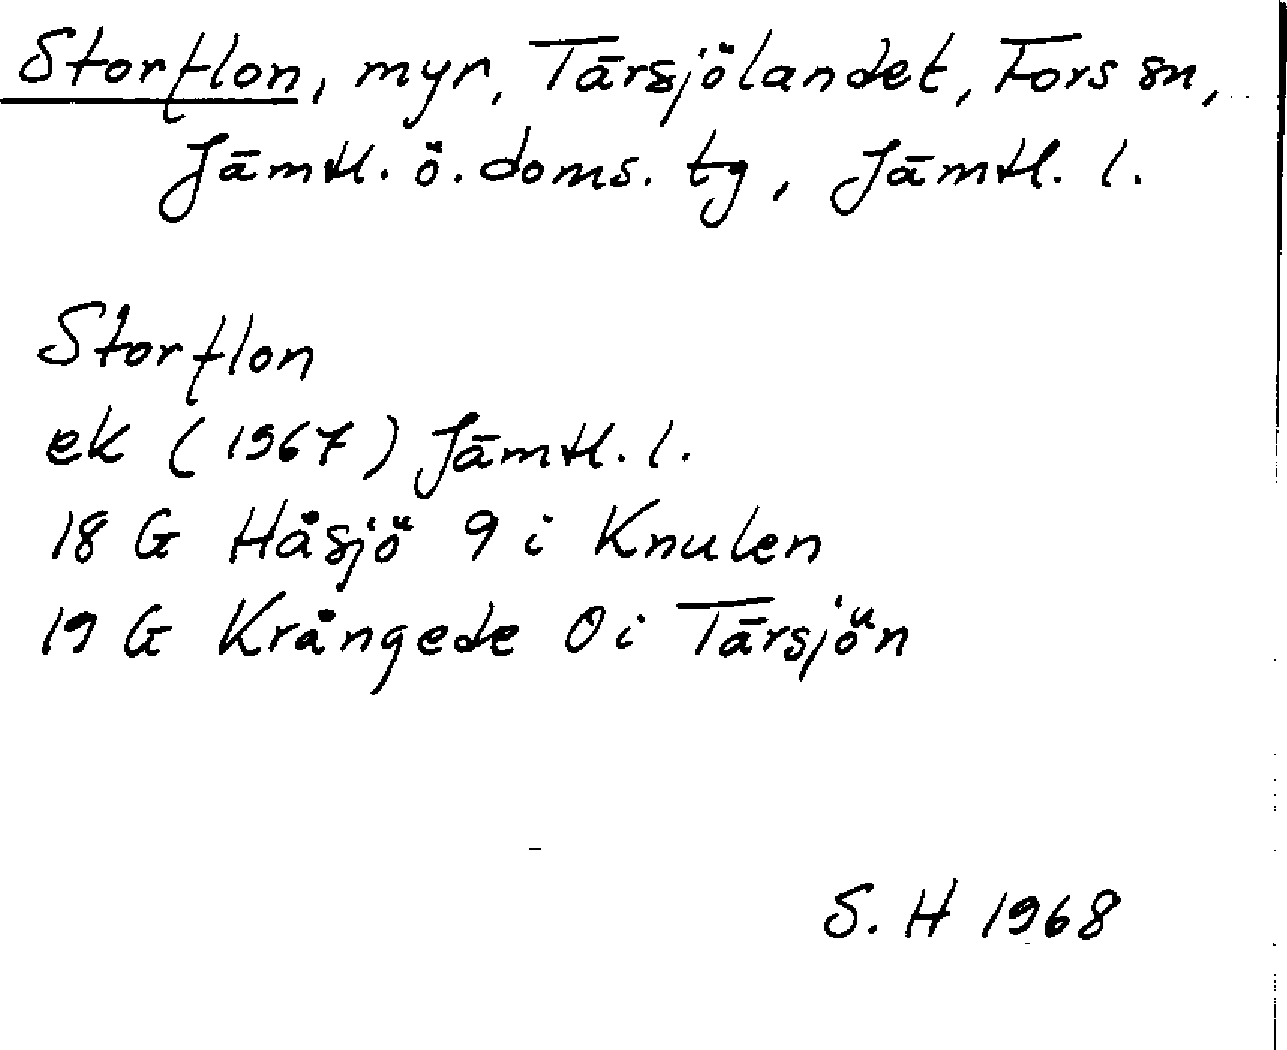 Storflon, myr, Tärsjölandet, Fors sn,
Jämtl. ö. doms. tg, Jämtl. l.
Storflon
ek (1967) Jämtl. l.
18 G Håsjö 9 i Knulen
19 G Krångede 0 i Tärsjön
S. H 1968